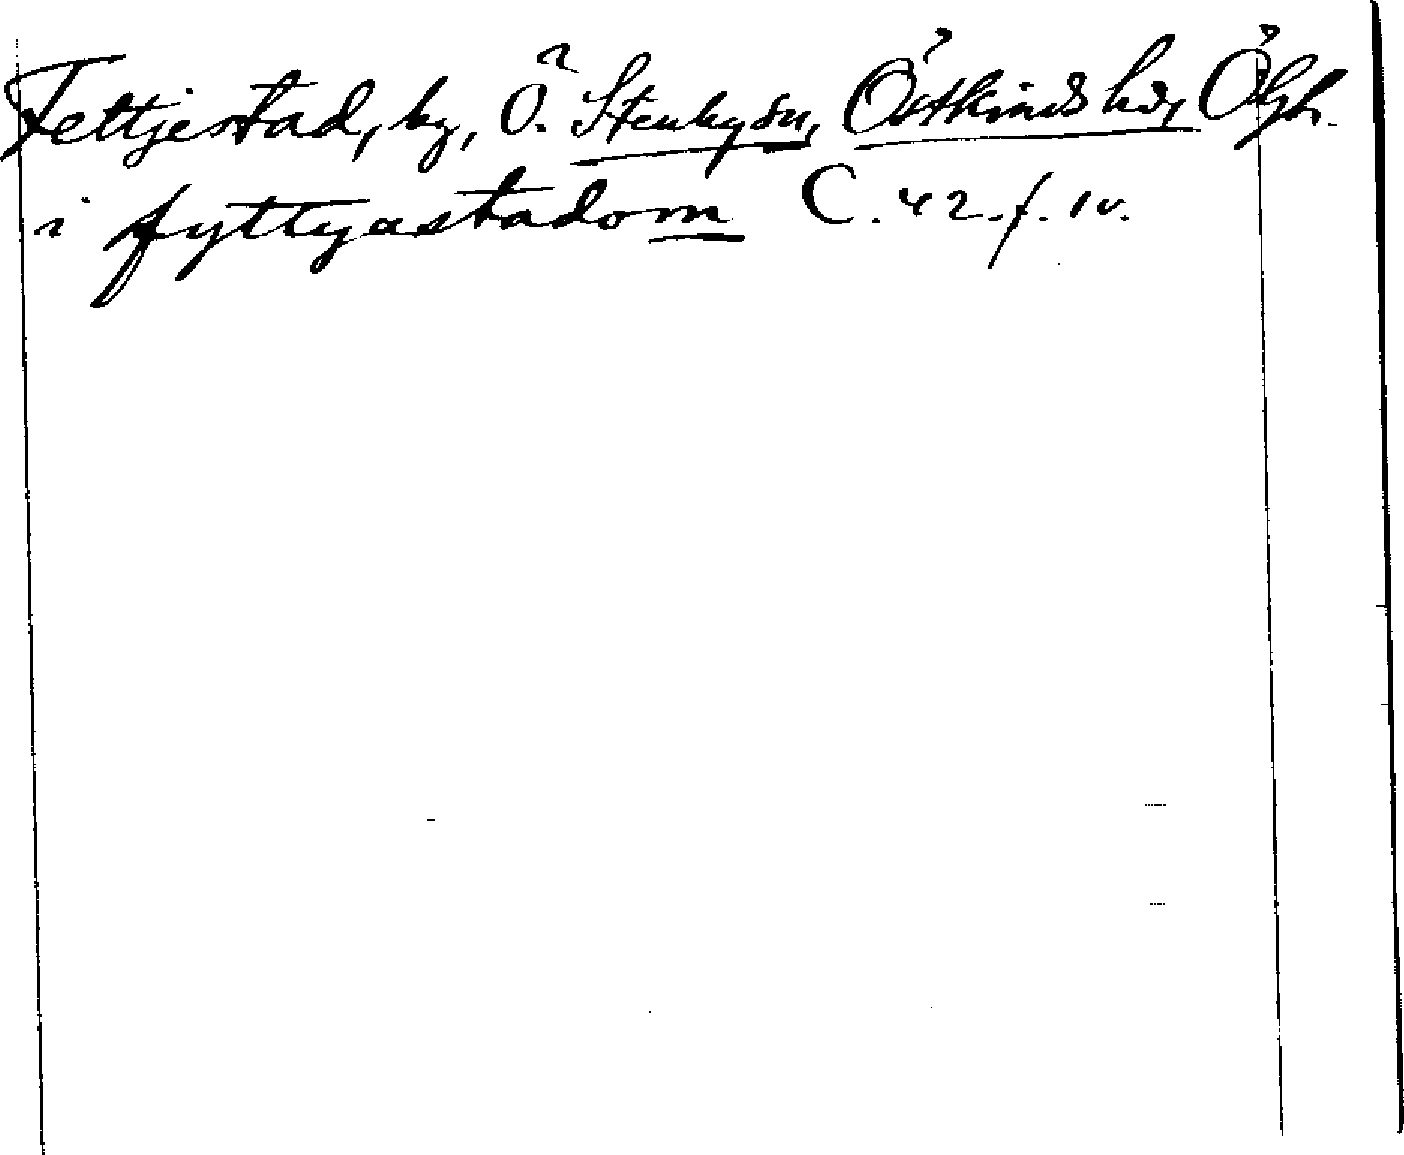 Fettjestad, by, Ö. Stenby sn, Östkinds hd, Ögh.
i fyttyastadom C. 42. f. 1v.